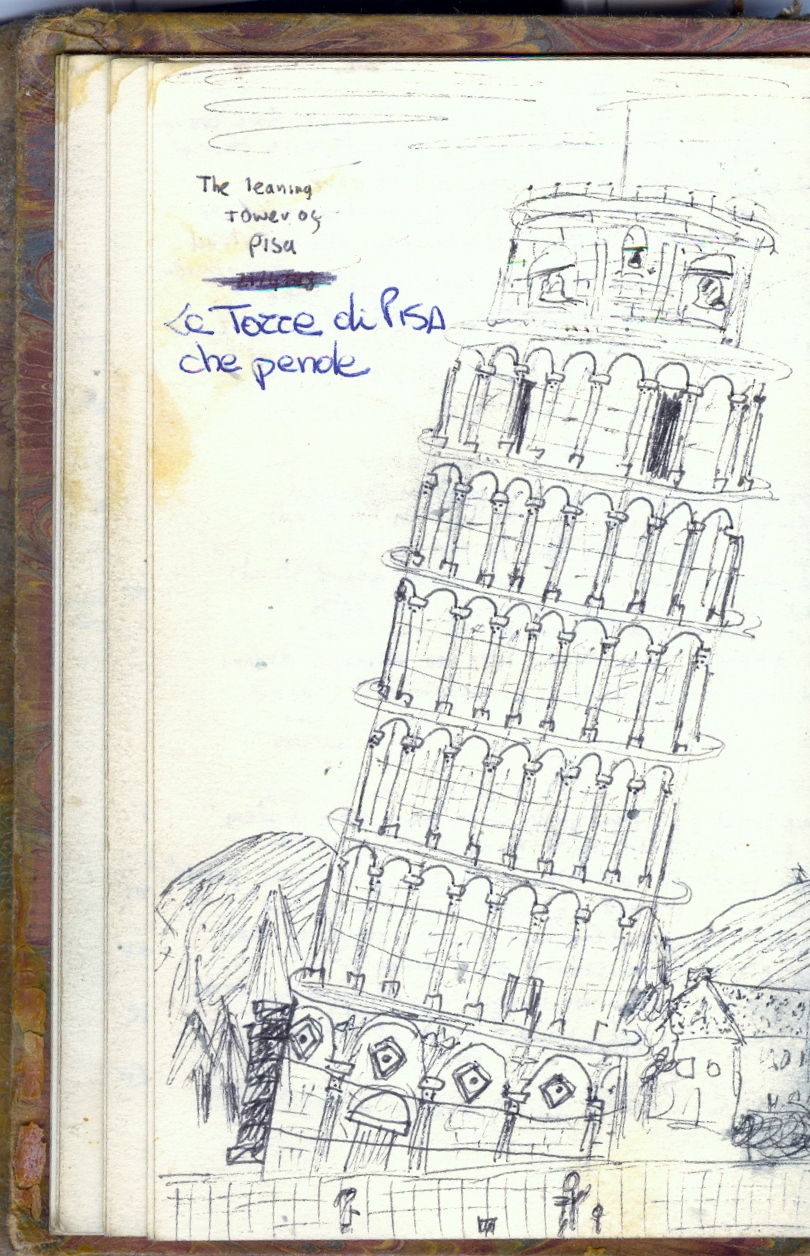 The leaning
Tower of
Pisa
La Torre di PISA
che pende